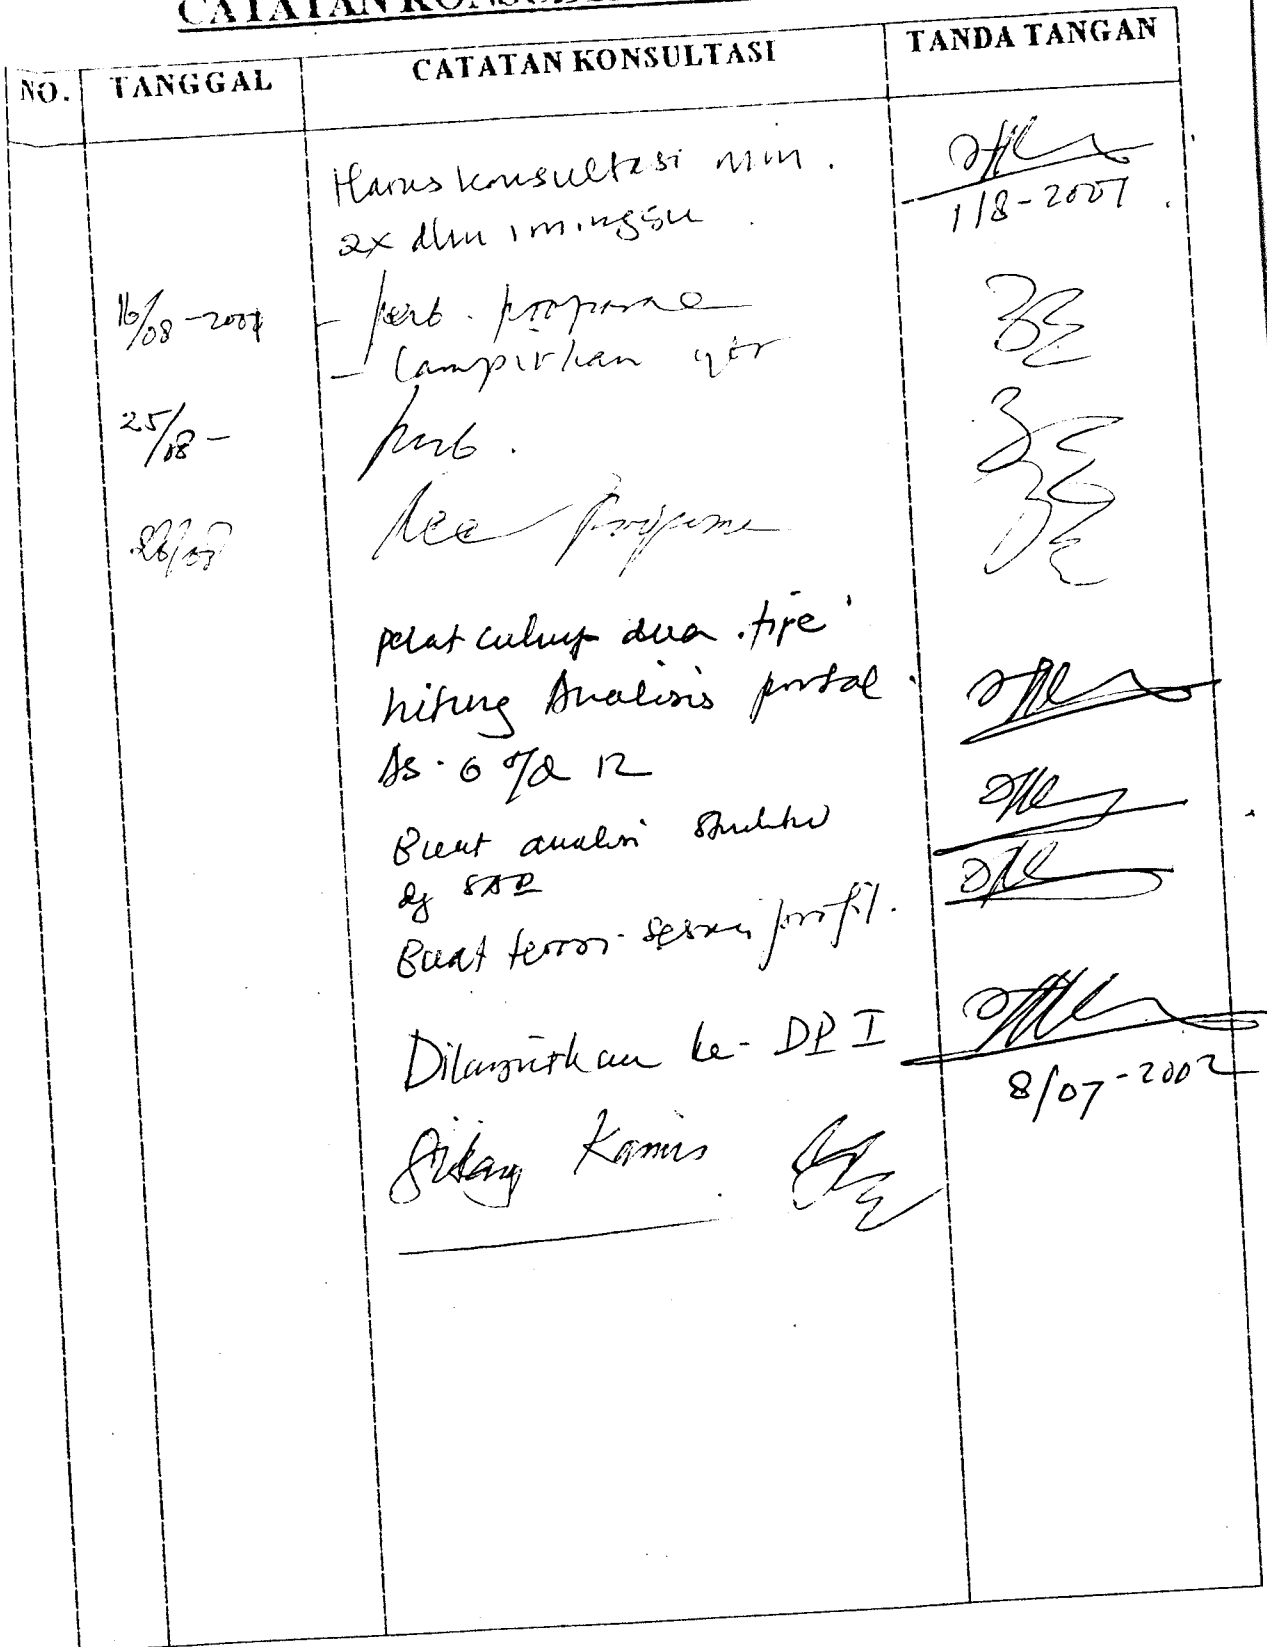 CATATAN KONSULTASI
NO. TANGGAL CATATAN KONSULTASI TANDA TANGAN
Harus konsultasi min.
2x dlm 1 minggu.
1/8-2001
16/08-2001 - perb. proposal
- Lampirkan
25/08- perb.
Acc proposal
pelat cukup dua tipe
hitung Analisis portal
As. 6 12
Buat analisi struktur
dg SAP
Buat sesuai profil.
Dilanjutkan ke- DP I
8/07-2002
Sidang Kamis